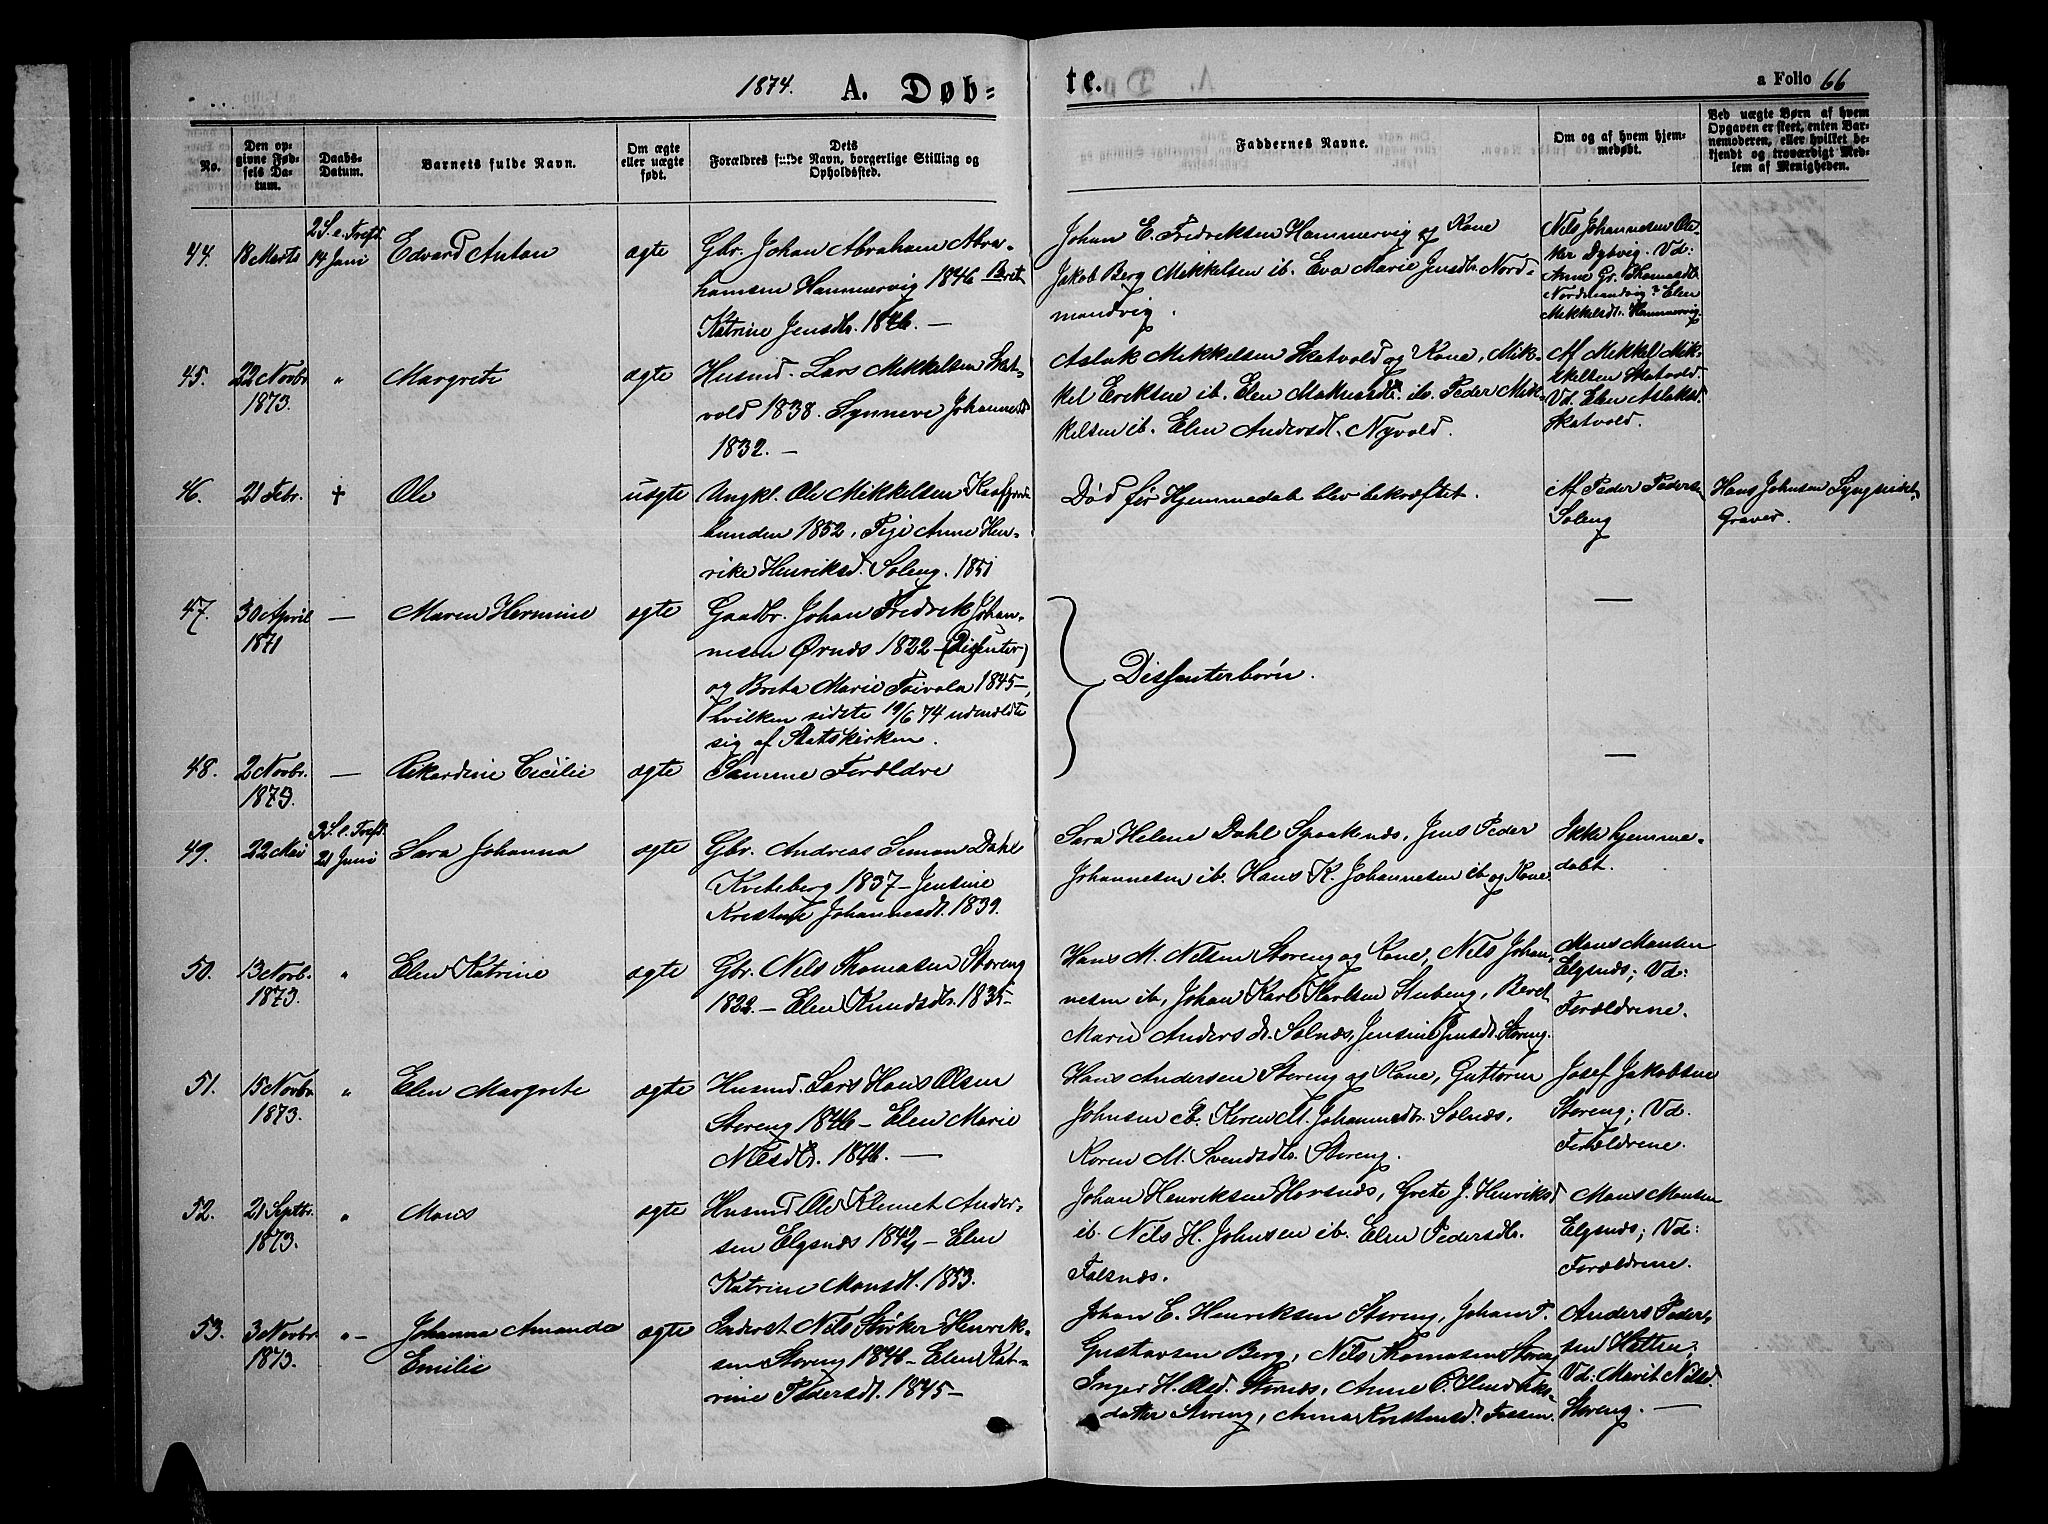 1874. A. Døb= te. a Folio 66
No.
Den op-
givne Fød-
sels Da-
tum.
Daabs-
Datum.
Barnets fulde Navn.
Om ægte
eller uægte
født.
Dets
Forældres fulde Navn, borgerlige Stilling og
Opholdssted.
Faddernes Navne.
Om og af hvem hjem-
medøbt.
Ved uægte Børn af hvem
Opgaven er skeet, enten Bar-
nemoderen, eller hvilket be-
kjendt og troværdigt Med-
lem af Menigheden.
44.
18 Marts
2 S. e. Trefd.
14 Juni
Edvard Anton
ægte
Gbr. Johan Abraham Abra-
hamsen Hammervig 1846 Brit
Katrine Jensdtr. 1846. —
Johan E. Fredriksen Hammervig og Kone
Jakob Berg Mikkelsen ib. Eva Marie Jensdtr Nord-
mandvig.
Nils Johannesen
Dybvig. Vd:
Anne Gr. Thomasdtr
Nordmandvig & Elen
Mikkelsdtr. Hammervig.
45.
22 Novbr
1873.
"
Margrete
ægte
Husmd. Lars Mikkelsen Skat-
vold 1838. Synneve Johannesd
1832. —
Aslak Mikkelsen Skatvold og Kone, Mik-
kel Eriksen ib. Elen ib. Peder Mik-
kelsen ib. Elen Andersdt. Nyvold.
Af Mikkel Mik-
kelsen Skatvold
Vd. Elen Aslaksd.
Skatvold.
46.
21 Febr.
†
Ole
uægte
Ungkl. Ole Mikkelsen Kaafjord-
bunden 1852, Pige Anne Hen-
rike Henriksd. Soleng. 1851
Død før Hjemmedaab blev bekræftet.
Af Peder Peders
Soleng
Hans Johnsen Lyngseidet
Graver.
47.
30 April
1871
—
Maren Hermine
ægte
Gaadbr. Johan Fredrik Johan-
nesen Ørnæs 1822 — (Dissenter)
og Brita Marie Toivola 1845 —,
hvilken sidste 19/6 74 udmeldte
sig af Statskirken.
Dissenterbørn.
—
48.
2 Novbr.
1873.
—
Rikardine Cecilie
ægte
Samme Forældre
—
49.
22 Mai
3 S. e. Trefd.
21 Juni
Sara Johanna
ægte
Gbr. Andreas Simon Dahl
Kveteberg 1837 — Jensine
Kristine Johannesdt. 1839.
Sara Helene Dahl Spaaknæs, Jens Peder
Johannesen ib. Hans K. Johannesen ib og Kone
Ikke hjemme-
døbt.
50.
13 Novb.
1873.
"
Elen Katrine
ægte
Gbr. Nils Thomasen Storeng
1822. — Elen Knudsdtr. 1835 —
Hans M. Nilsen Storeng og Kone, Nils Johan-
nesen ib, Johan Karl Karlsen Stubeng, Beret
Marie Andersdt. Solnæs, Jensine Jensdt. Storeng.
Mons Monsen
Elgsnæs; Vd:
Forældrene.
51.
15 Novbr
1873.
"
Elen Margrete
ægte
Husmd. Lars Hans Olsen
Storeng 1846 — Elen Marie
Nilsdtr. 1846. —
Hans Andersen Storeng og Kone, Guttorm
Johnsen ib. Karen M. Johannesdtr. Solnæs,
Karen M. Svendsdtr. Storeng.
Josef Jakobsen
Storeng; Vd.
Forældrene.
52.
21 Septbr.
1873.
"
Mons
ægte
Husmd Ole Klemet Ander-
sen Elgsnæs 1842 — Elen
Katrine Monsdt. 1853.
Johan Henriksen Havnæs, Grete J. Henriksd
ib. Nils H. Johnsen ib. Elen Pedersdtr.
Falsnæs.
Mons Monsen
Elgsnæs; Vd:
Forældrene.
53.
3 Novbr
1873.
" —
Johanna Amanda
Emilie
ægte
Inderst. Nils Størker Henrik-
sen Storeng 1846 — Elen Kat-
rine Pedersdt. 1845 —
Johan E. Henriksen Storeng, Johan P.
Gustavsen Berg, Nils Thomasen Storeng
Inger H. Olsd. Stornæs, Anne C. Henriks-
datter Storeng, Anna Kristensd.
Anders Peder-
sen Hatten;
Vd: Marit Nilsd.
Storeng. —